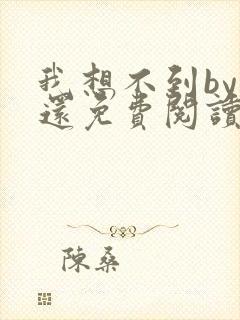 我想不到by
還免費閱讀
陳桑